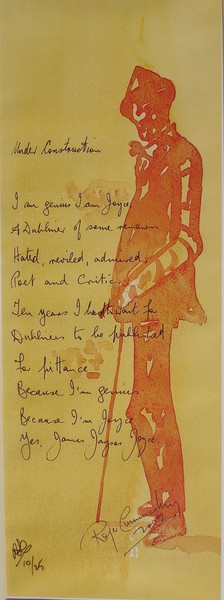 Under Construction
I am genius I am Joyce
A Dubliner of some renown
Hated, reviled, admired
Poet and Critic
Ten years I had to wait for
Dubliners to be published
For pittance
Because I'm genius
Because I'm Joyce
Yes, James Joyce
10/25